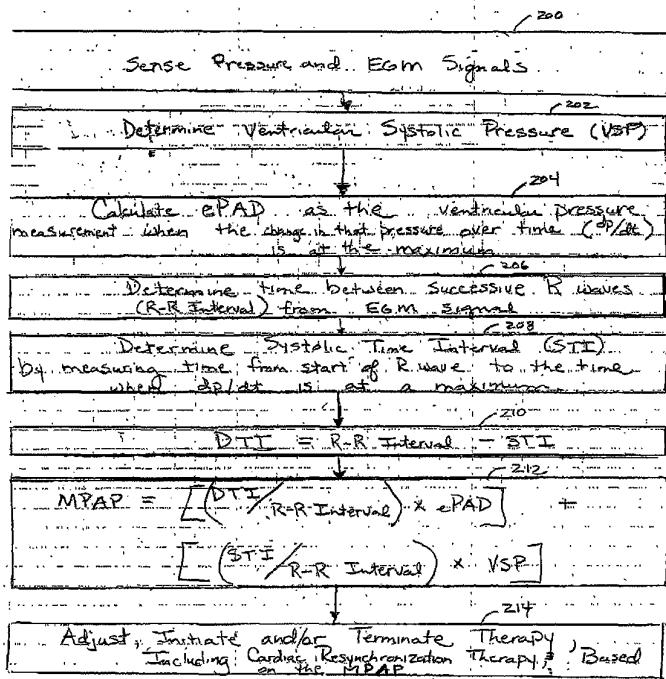 200
Sense Pressure and EGM Signals
202
Determine Ventricular Systolic Pressure (VSP)
204
Calculate ePAD as the ventricular pressure
measurement when the change in that pressure over time (dp/dt)
is at the maximum
206
Determine time between successive R waves
(R-R Interval) from EGM signal
208
Determine Systolic Time Interval (STI)
by measuring time from start of R wave to the time
when dp/dt is at a maximum
210
DTI = R-R Interval - STI
212
MPAP = [(DTI/R-R-Interval) × ePAD] +
[(STI/R-R Interval) × VSP]
214
Adjust, Initiate and/or Terminate Therapy
Including Cardiac Resynchronization Therapy, Based
on the MPAP